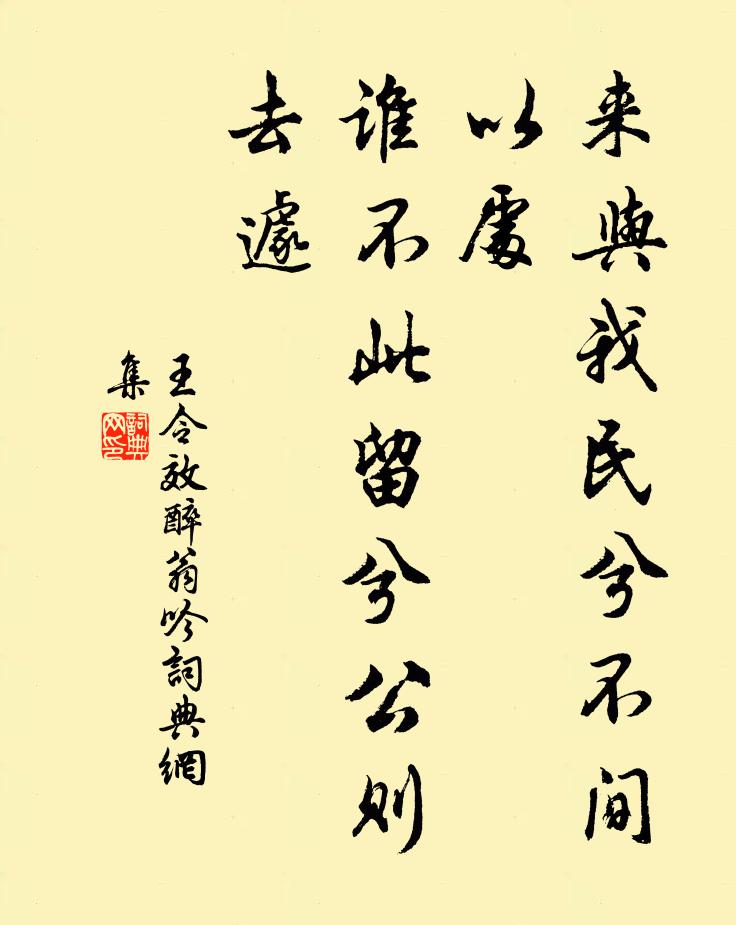 来與我民兮不间
以處
谁不此留兮公则
去遽
王令效醉翁吟詞典網
集
詞典
网印